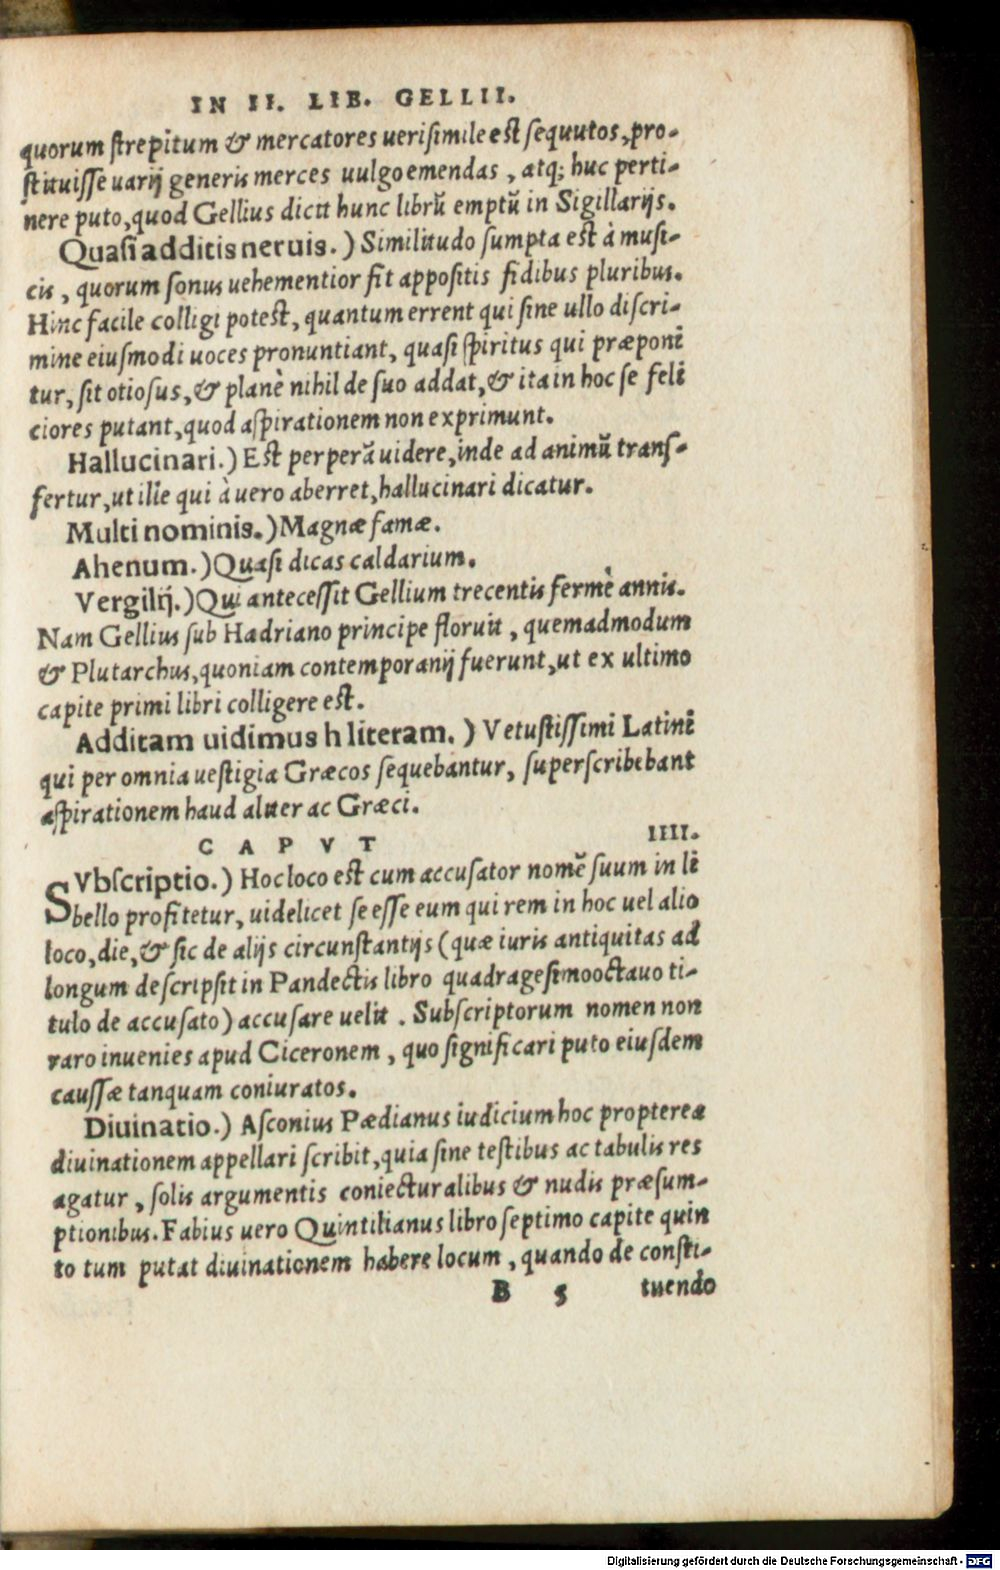 IN II. LIB. GELLII.
quorum strepitum & mercatores uerisimile est sequutos, pro-
stituisse uarij generis merces uulgo emendas, atq; huc perti-
nere puto, quod Gellius dicit hunc librũ emptũ in Sigillarijs.
Quasi additis neruis.) Similitudo sumpta est à musi-
cis, quorum sonus uehementior fit appositis fidibus pluribus.
Hinc facile colligi potest, quantum errent qui sine ullo discri-
mine eiusmodi uoces pronuntiant, quasi spiritus qui præponĩ
tur, sit otiosus, & planè nihil de suo addat, & ita in hoc se felĩ
ciores putant, quod aspirationem non exprimunt.
Hallucinari.) Est perperã uidere, inde ad animũ trans-
fertur, ut ille qui à uero aberret, hallucinari dicatur.
Multi nominis.) Magnæ famæ.
Ahenum.) Quasi dicas caldarium.
Vergilij.) Qui antecessit Gellium trecentis fermè annis.
Nam Gellius sub Hadriano principe floruit, quemadmodum
& Plutarchus, quoniam contemporanij fuerunt, ut ex ultimo
capite primi libri colligere est.
Additam uidimus h literam.) Vetustissimi Latinĩ
qui per omnia uestigia Græcos sequebantur, superscribebant
aspirationem haud aliter ac Græci.
CAPVT IIII.
SVbscriptio.) Hoc loco est cum accusator nomẽ suum in lĩ
bello profitetur, uidelicet se esse eum qui rem in hoc uel alio
loco, die, & sic de alijs circunstantijs (quæ iuris antiquitas ad
longum descripsit in Pandectis libro quadragesimooctauo ti-
tulo de accusato) accusare uelit. Subscriptorum nomen non
raro inuenies apud Ciceronem, quo significari puto eiusdem
caussæ tanquam coniuratos.
Diuinatio.) Asconius Pædianus iudicium hoc propterea
diuinationem appellari scribit, quia sine testibus ac tabulis res
agatur, solis argumentis coniecturalibus & nudis præsum-
ptionibus. Fabius uero Quintilianus libro septimo capite quin
to tum putat diuinationem habere locum, quando de consti-
B 5 tuendo
Digitalisierung gefördert durch die Deutsche Forschungsgemeinschaft - DFG